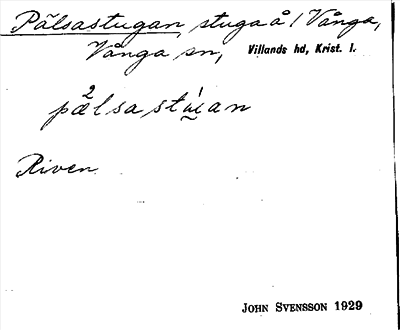 Pälsastugan, stuga å 1 Vånga,
Vånga sn, Villands hd, Krist. l.
pälsastúan
Riven
JOHN SVENSSON 1929